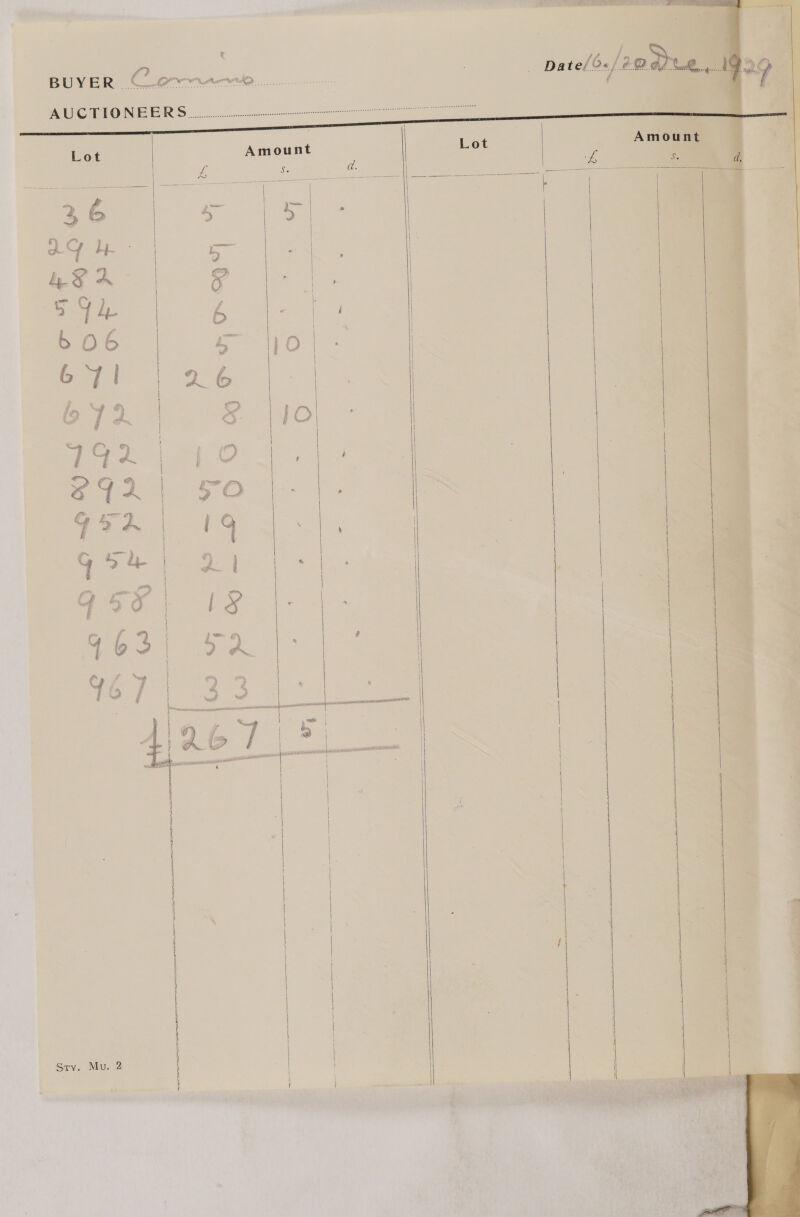 Date 16./20 Dec, 1929
BUYER Comino
AUCTIONEERS
Lot Amount Lot Amount
£ s. d. £ s. d.
36 5 5 -
294 - 5 - -
482 8 - -
594 6 - -
606 5 10 -
671 26
672 8 10 -
792 10 - -
892 50 - -
952 19 - -
954 21 - -
958 18 - -
963 52 - -
967 33 - -
£ 267 5
Sty. Mu. 2